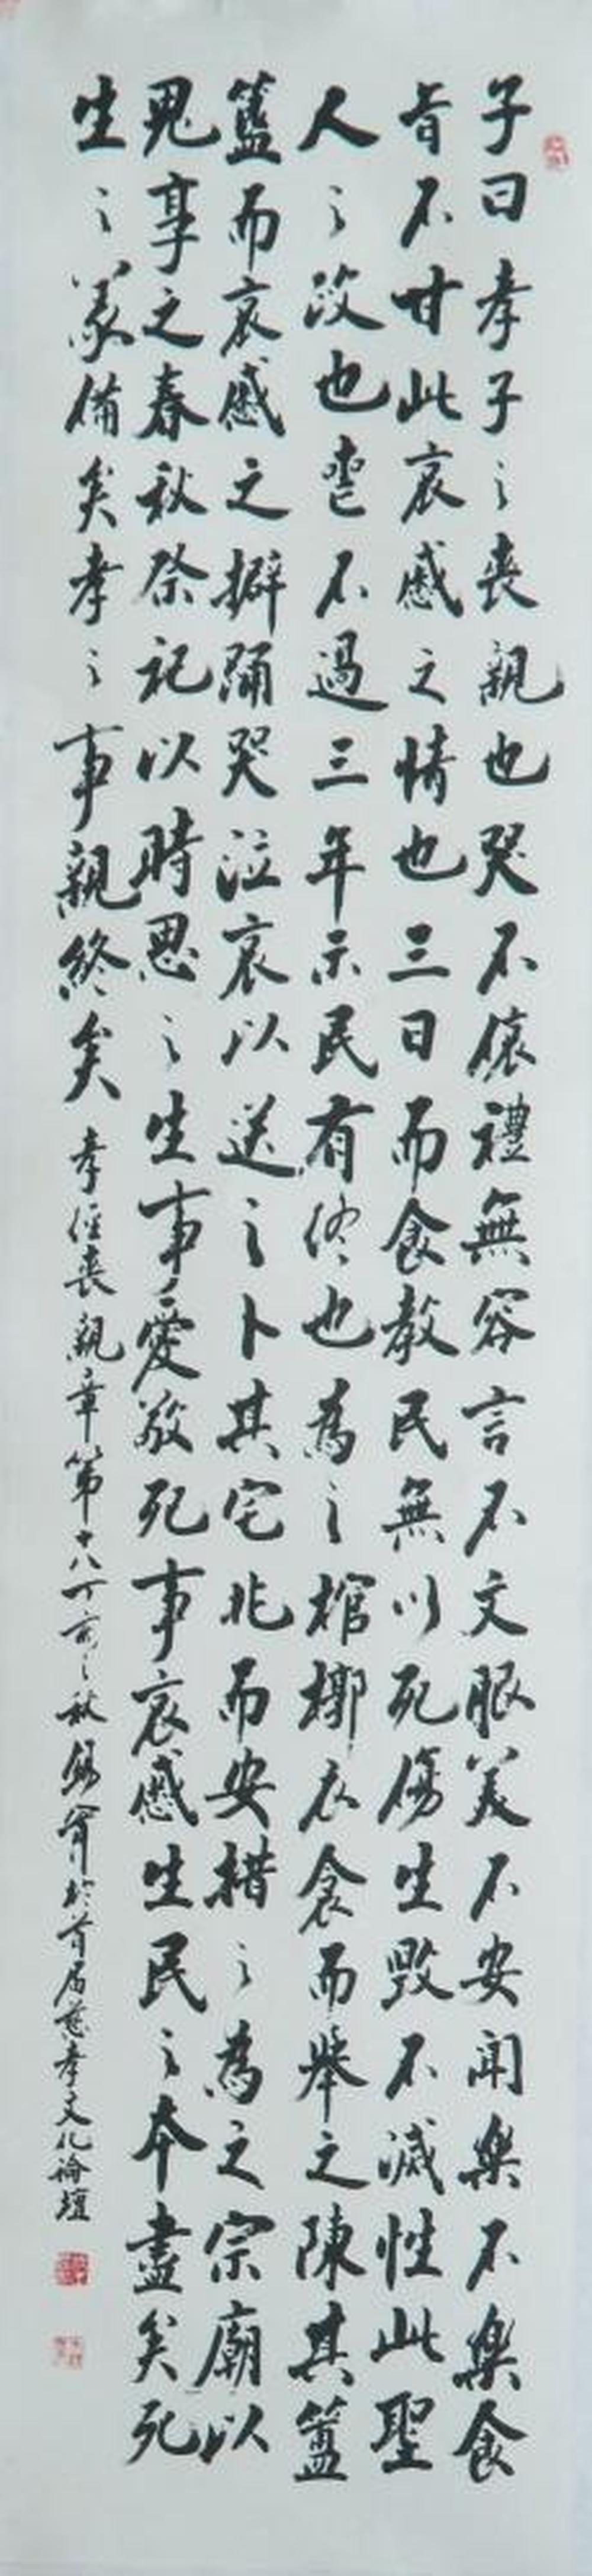 子曰孝子之喪親也哭不偯禮無容言不文服美不安聞樂不樂食
旨不甘此哀慼之情也三日而食教民無以死傷生毀不滅性此聖
人之没也喪不過三年示民有終也為之棺槨衣衾而舉之陳其簠
簋而哀慼之擗踊哭泣哀以送之卜其宅兆而安措之為之宗廟以
鬼享之春秋祭祀以時思之生事愛敬死事哀慼生民之本盡矣死
生之義備矣孝之事親終矣 孝經喪親章第十八丁亥之秋於首屆慈孝文化論壇